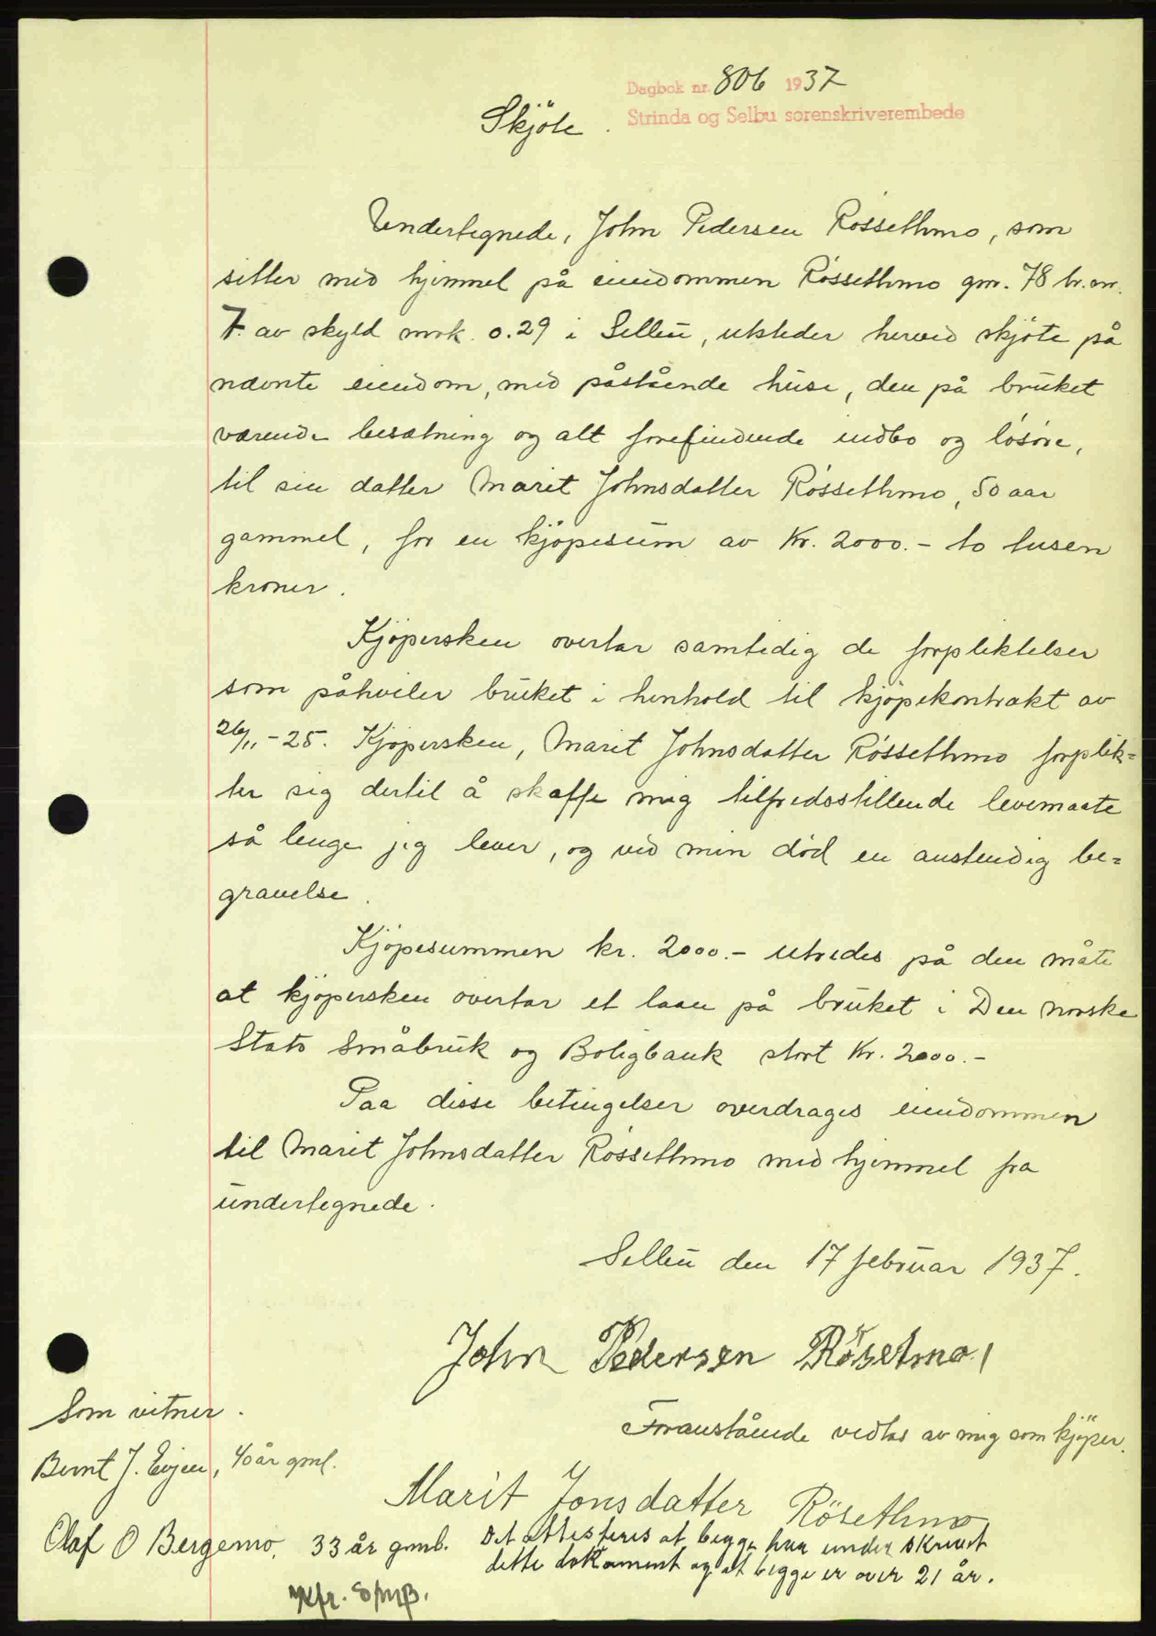 Dagbok nr. 806 1937
Strinda og Selbu sorenskriverembede
Skjöte.
Undertegnede, John Pedersen Rössethmo, som
sitter med hjemmel på eiendommen Rössethmo gnr. 78 br.nr.
7 av skyld mrk. 0.29 i Selbu, utsteder herved skjöte på
nævnte eiendom, med påstående huse, den på bruket
værende besætning og alt forefindende indbo og lösöre,
til sin datter Marit Johnsdatter Rössethmo, 50 aar
gammel, for en kjöpesum av Kr. 2000.- to tusen
kroner.
Kjöpersken overtar samtidig de forpliktelser
som påhviler bruket i henhold til kjöpekontrakt av
26/11-25. Kjöpersken, Marit Johnsdatter Rössethmo forplik=
ter sig dertil å skaffe mig tilfredsstillende levemaate
så lenge jeg lever, og ved min död en anstendig be=
gravelse.
Kjöpesummen kr. 2000.- utredes på den måte
at kjöpersken overtar et laan på bruket i Den norske
Stats Småbruk og Boligbank stort Kr. 2000.-
Paa disse betingelser overdrages eiendommen
til Marit Johnsdatter Rössethmo med hjemmel fra
undertegnede.
Selbu den 17 februar 1937.
John Pedersen Rösetmo
Som vitner.
Foranstående vedtas av mig som kjöper.
Bernt J. Evjen, 40 år gml.
Marit Jonsdatter Rösethmo
Olaf O Bergemo, 33 år gml.
Det attesteres at begge har underskrevet
dette dokument og at begge er over 21 år.
Kfr.